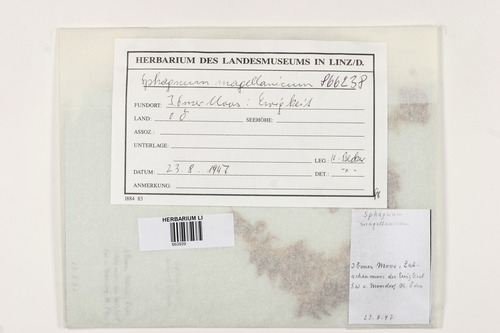 HERBARIUM DES LANDESMUSEUMS IN LINZ/D.
Sphagnum magellanicum 866238
FUNDORT: Ibmer Moos: Ewigkeit
LAND: o ö SEEHÖHE:
ASSOZ.:
UNTERLAGE:
LEG.: H.
DATUM: 23. 8. 1947 DET.: - " -
ANMERKUNG:
1884 83
HERBARIUM LI
Sphagnum
magellanicum
Ibmer Moos,
der Ewigkeit
SW v. H.
23.8.47.